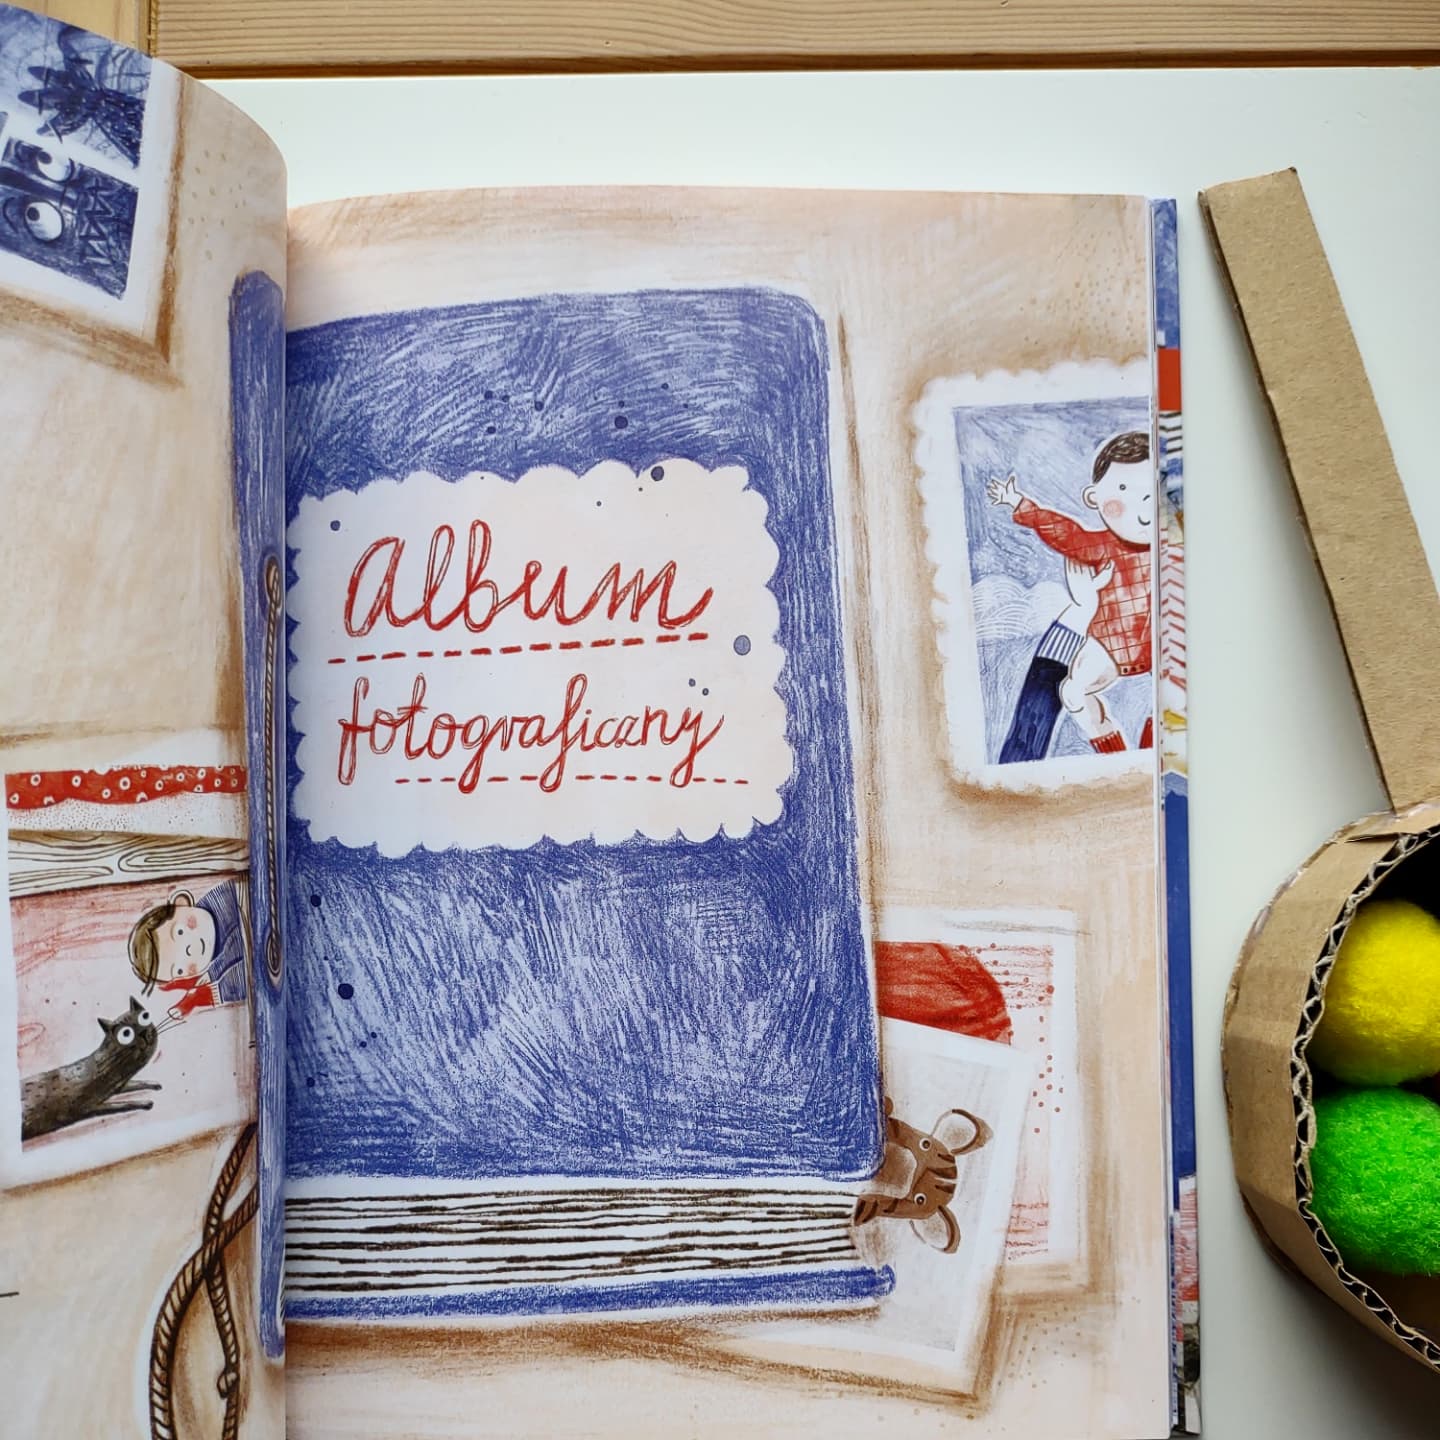 Album
fotograficzny